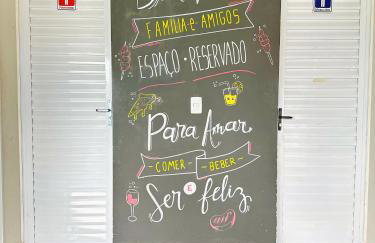 FAMÍLIA E AMIGOS
ESPAÇO • RESERVADO
Para Amar
- COMER - BEBER -
Ser E feliz